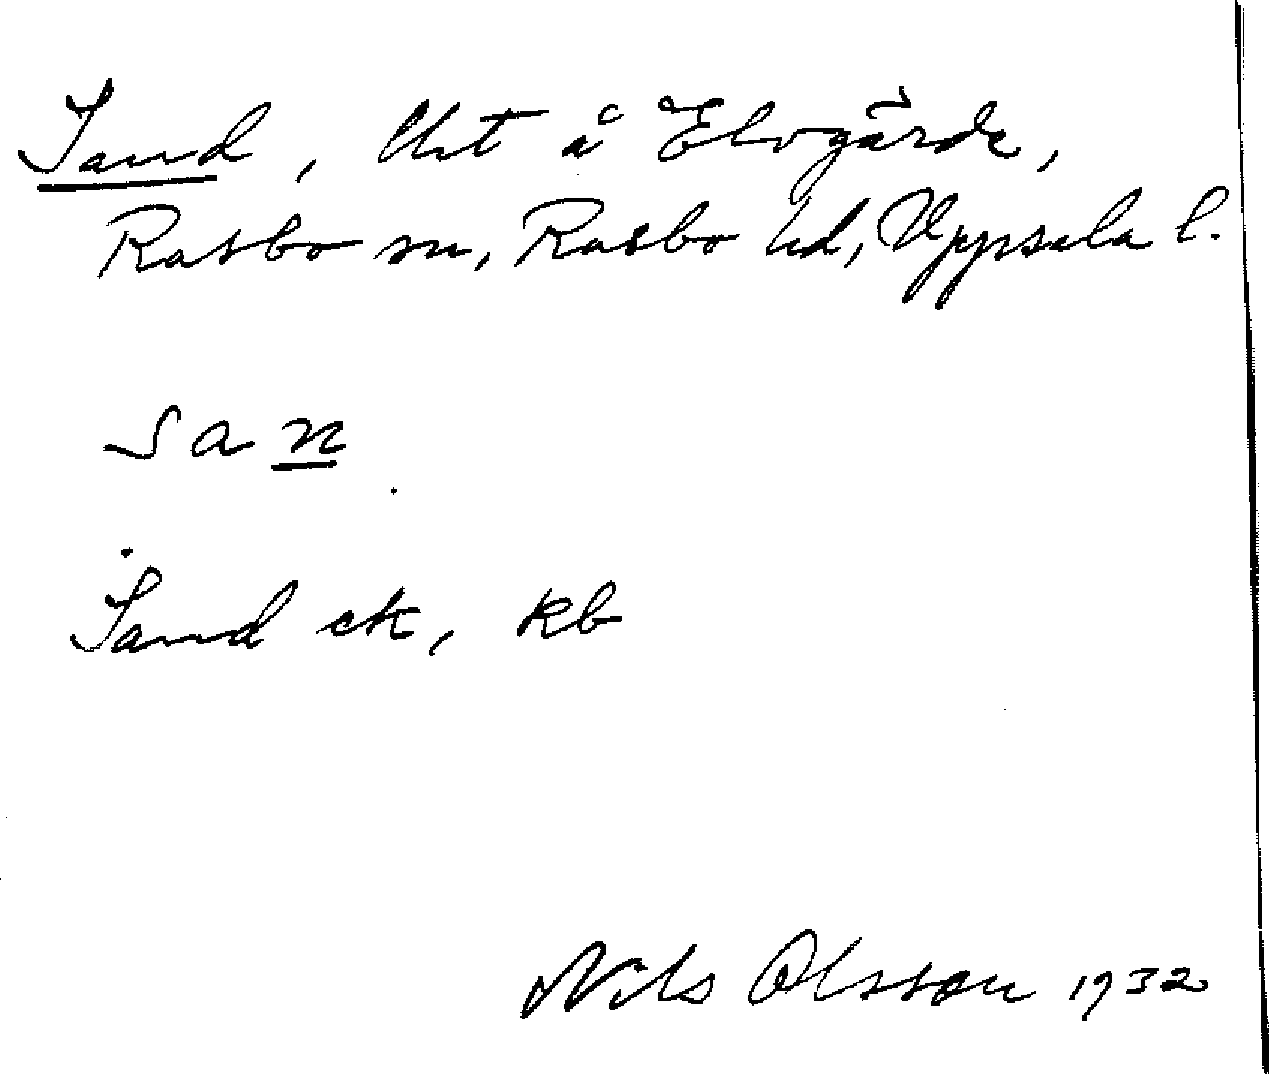 Sand, lht å Elvgärde,
Rasbo sn, Rasbo hd, Uppsala l.
san
Sand ek, kb
Nils Olsson 1932